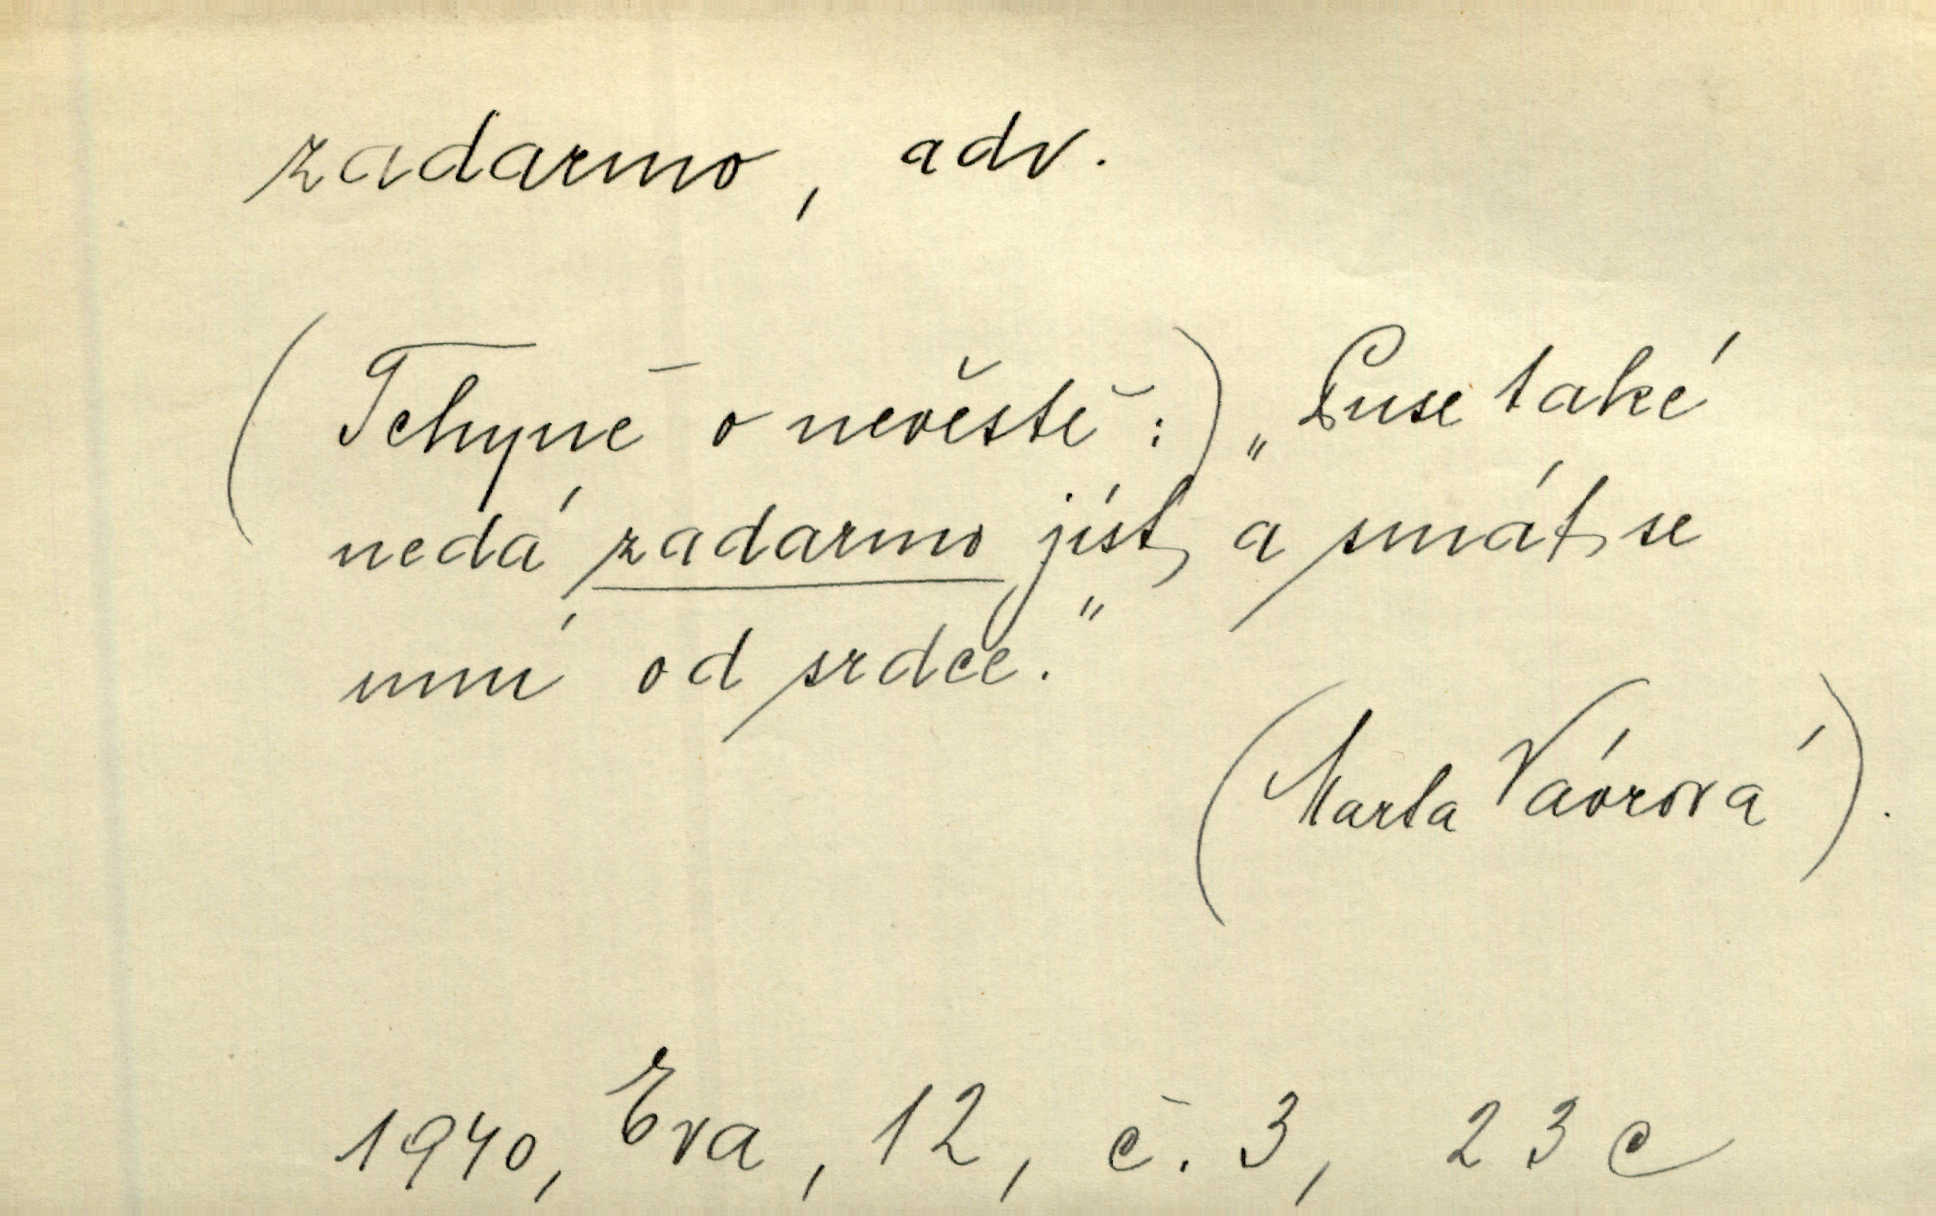 zadarmo, adv.
(Tchyně o nevěstě:) „Luse také
nedá zadarmo jíst, a smát se
umí od srdce."
(Marta Vávrová).
1940, Eva, 12, č. 3, 23 c